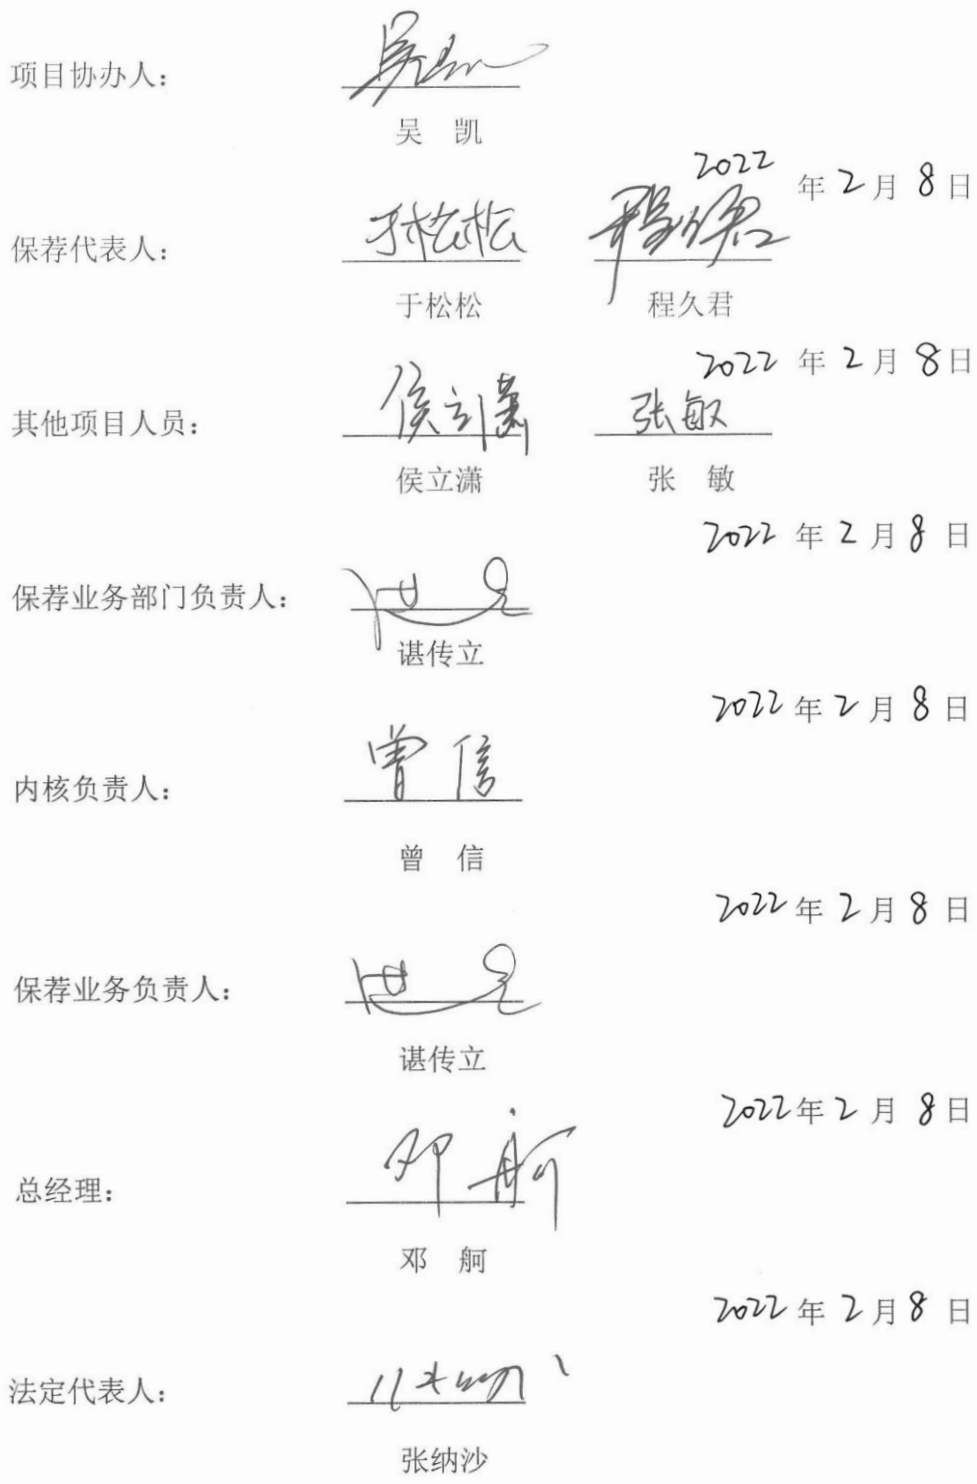 项目协办人： 吴凯
吴 凯
2022 年 2 月 8 日
保荐代表人： 于松松 程久君
于松松 程久君
2022 年 2 月 8 日
其他项目人员： 侯立潇 张敏
侯立潇 张 敏
2022 年 2 月 8 日
保荐业务部门负责人：
谌传立
2022 年 2 月 8 日
内核负责人： 曾信
曾 信
2022 年 2 月 8 日
保荐业务负责人：
谌传立
2022 年 2 月 8 日
总经理： 邓舸
邓 舸
2022 年 2 月 8 日
法定代表人：
张纳沙